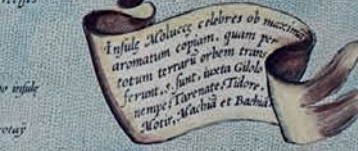 Insulę Moluccę celebres ob maximam
aromatum copiam, quam per
totum terrarū orbem trans
ferunt, 5. sunt, iuxta Gilolo
nempe; Tarenate, Tidore,
Motir, Machiā et Bachiā
o insulę